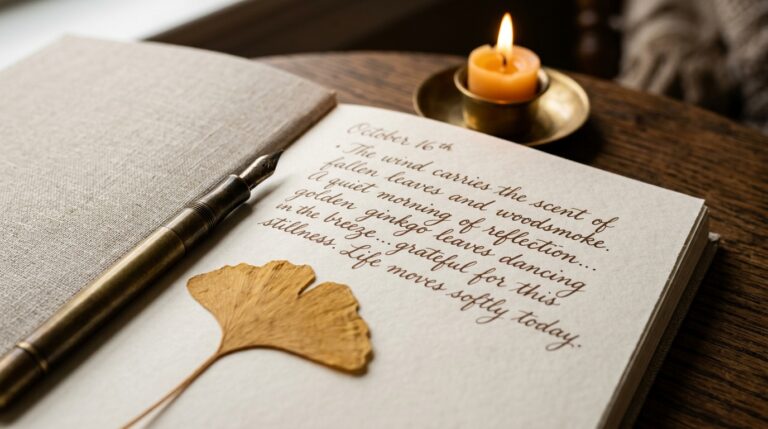 October 16th
• The wind carries the scent of
fallen leaves and woodsmoke.
A quiet morning of reflection...
golden ginkgo leaves dancing
in the breeze... grateful for this
stillness. Life moves softly today.